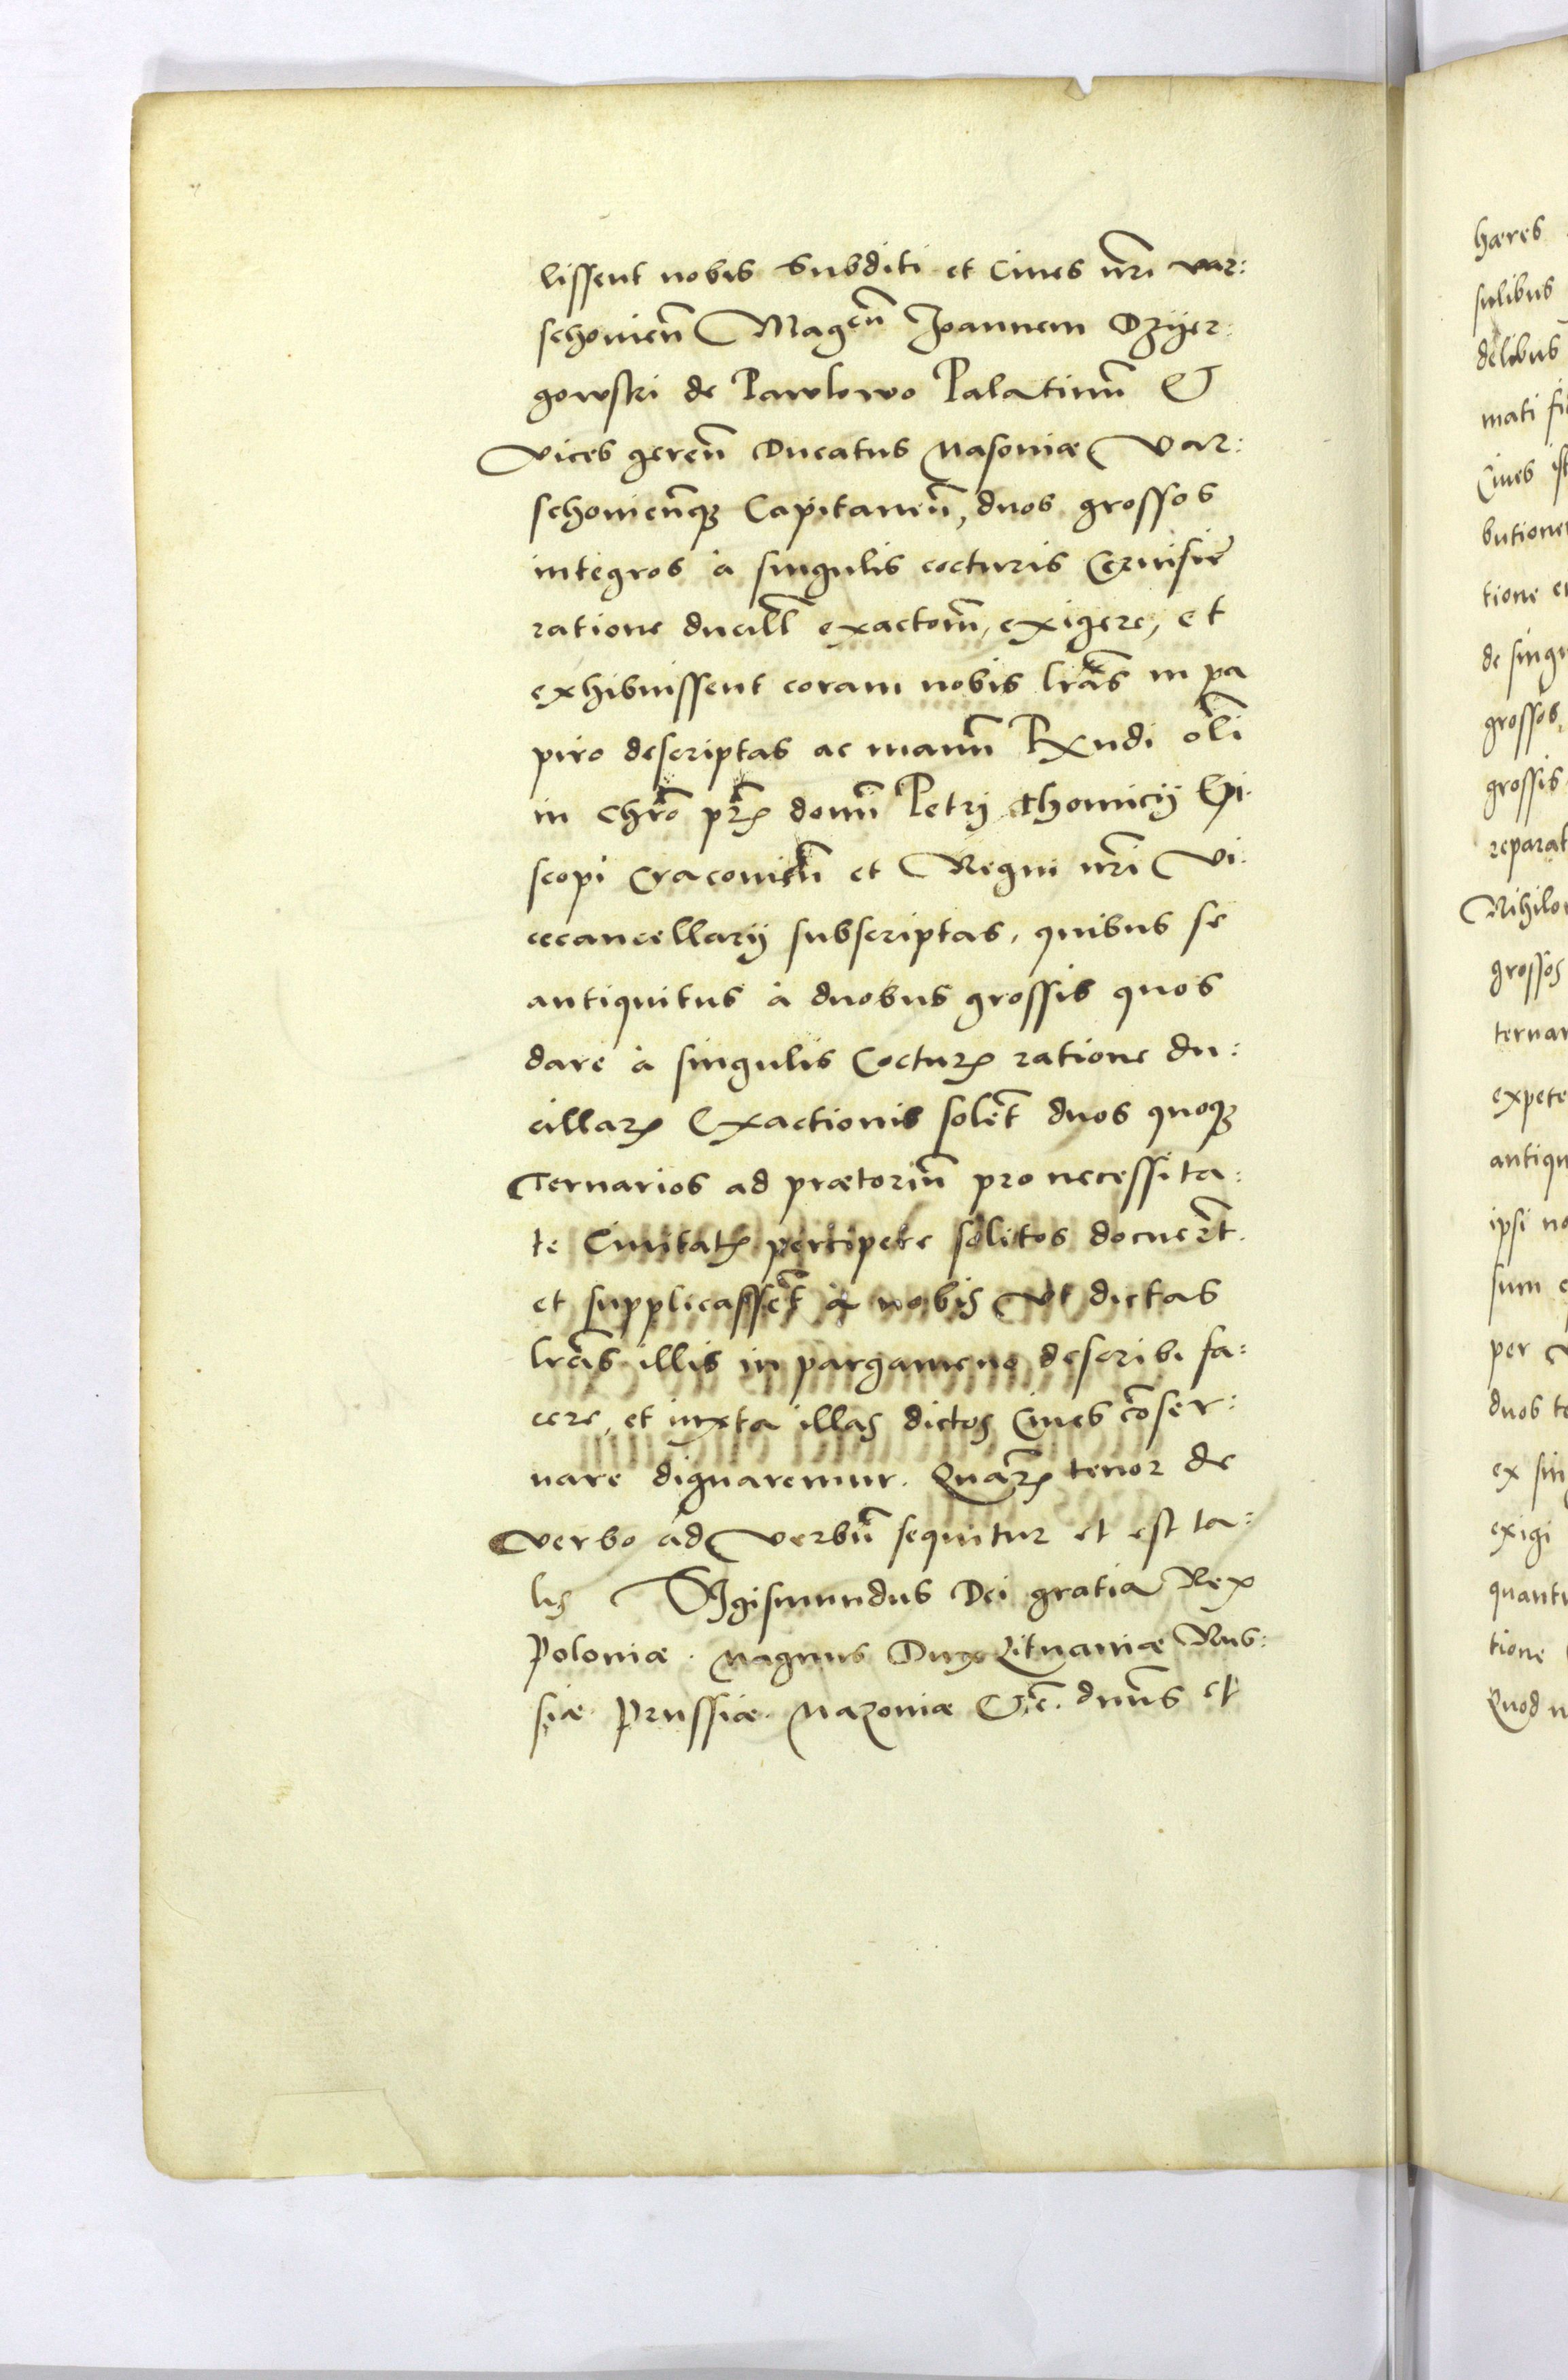 lissent nobis Subditi et Ciues nr̃i var:
schouien̄ Mag^cum Joannem Dzyer:
gowski de Pawlowo Palatinū &
vices geren̄ Ducatus Masouiæ Var:
schouien̄q3 Capitaneū, duos grossos
integros à singulis cocturis Ceruisie
ratione ducill exactionū, exigere, et
exhibuissent coram nobis lr̃as in pa
piro descriptas ac manū Rxndi olī
in Chrō pr̃is domī Petrj Thomicij Epi
scopi Cracouien̄ et Regni nr̃i Vi:
cecancellarij subscriptas, quibus se
antiquitus à duobus grossis quos
dare à singulis Coctur̃ ratione du:
cillar̃ Exactionis solēt duos quoq3
Ternarios ad prætoriū pro necessita:
te Ciuitat̃ percipere solitos docuer̃t.
et supplicassēt à nobis Vt dictas
lr̃as illis in pargameno describi fa:
cere, et iuxta illas dictos Ciues cōser:
uare dignaremur. Quar̃ tenor de
verbo ad verbū sequitur et est ta:
lis Sigismundus Dei gratia Rex
Poloniæ. Magnus Dux Lituaniæ Rus:
siæ Prussiæ. Mazouiæ &c̃. dn̄us et
hæres
sulibus
delibus
mati
Ciues
butione
tione
de
grossos,
grossis
reparat
Nihilo
grossos
ternar
expete
antiqu
ipsi no
sum
per
duos te
ex sin
exigi
quant
tione
Quod